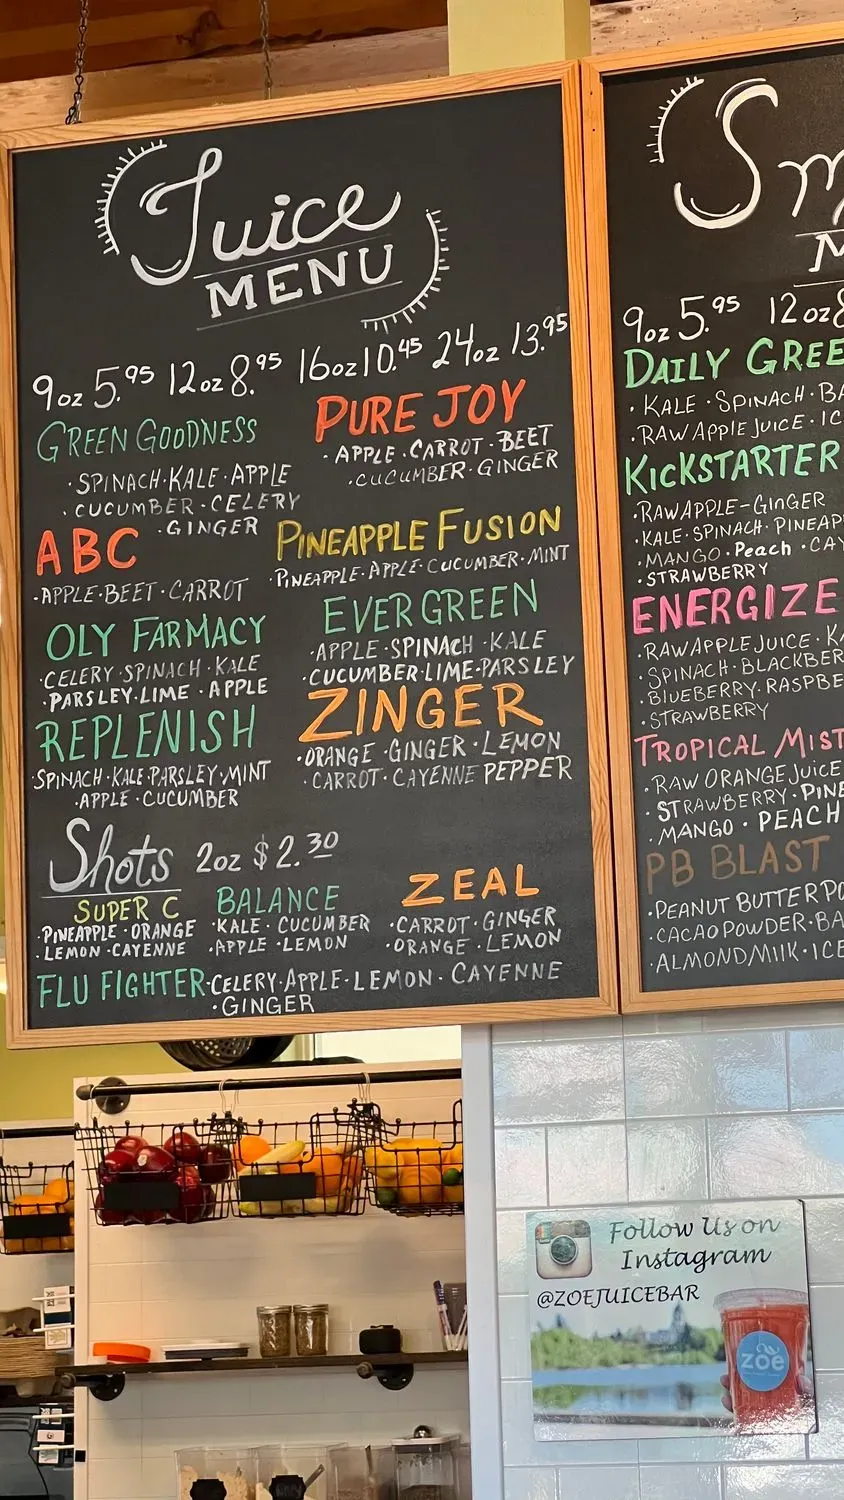 Juice
MENU
9oz 5.95 12oz 8.95 16oz 10.45 24oz 13.95
GREEN GOODNESS
· SPINACH · KALE · APPLE
· CUCUMBER · CELERY
· GINGER
PURE JOY
· APPLE · CARROT · BEET
· CUCUMBER · GINGER
ABC
· APPLE · BEET · CARROT
PINEAPPLE FUSION
· PINEAPPLE · APPLE · CUCUMBER · MINT
OLY FARMACY
· CELERY · SPINACH · KALE
· PARSLEY · LIME · APPLE
EVERGREEN
· APPLE · SPINACH · KALE
· CUCUMBER · LIME · PARSLEY
REPLENISH
· SPINACH · KALE · PARSLEY · MINT
· APPLE · CUCUMBER
ZINGER
· ORANGE · GINGER · LEMON
· CARROT · CAYENNE PEPPER
Shots 2oz $2.30
SUPER C
· PINEAPPLE · ORANGE
· LEMON · CAYENNE
BALANCE
· KALE · CUCUMBER
· APPLE · LEMON
ZEAL
· CARROT · GINGER
· ORANGE · LEMON
FLU FIGHTER · CELERY · APPLE · LEMON · CAYENNE
· GINGER
Sm
M
9oz 5.95 12oz 8
DAILY GREE
· KALE · SPINACH · BA
· RAW APPLE JUICE · IC
KICKSTARTER
· RAW APPLE-GINGER
· KALE · SPINACH · PINEAP
· MANGO · Peach · CAY
· STRAWBERRY
ENERGIZE
· RAW APPLE JUICE · KA
· SPINACH · BLACKBER
· BLUEBERRY · RASPBE
· STRAWBERRY
TROPICAL MIST
· RAW ORANGE JUICE
· STRAWBERRY · PINE
· MANGO · PEACH
PB BLAST
· PEANUT BUTTER PO
· CACAO POWDER · BA
· ALMOND MILK · ICE
Follow Us on
Instagram
@ZOEJUICEBAR
zoe